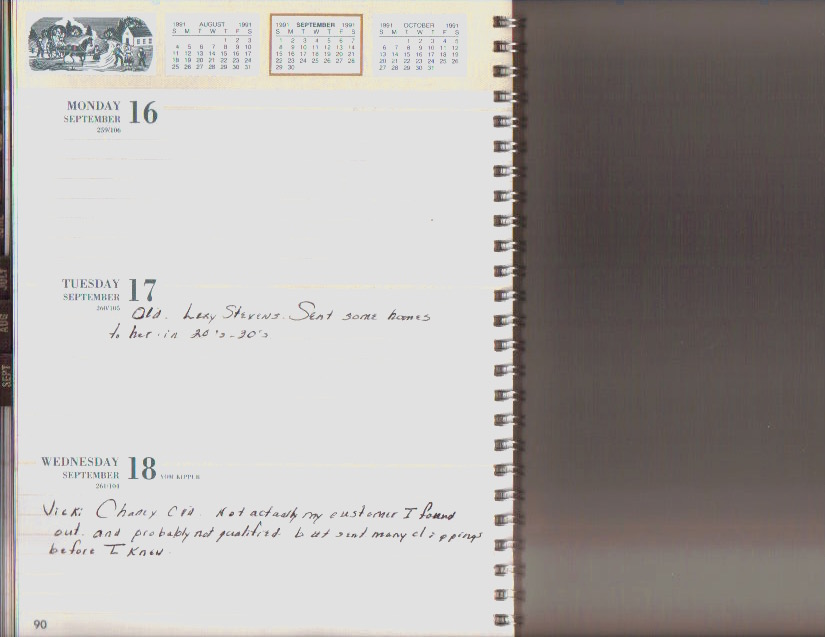 1991 AUGUST 1991
S M T W T F S
1 2 3
4 5 6 7 8 9 10
11 12 13 14 15 16 17
18 19 20 21 22 23 24
25 26 27 28 29 30 31
1991 SEPTEMBER 1991
S M T W T F S
1 2 3 4 5 6 7
8 9 10 11 12 13 14
15 16 17 18 19 20 21
22 23 24 25 26 27 28
29 30
1991 OCTOBER 1991
S M T W T F S
1 2 3 4 5
6 7 8 9 10 11 12
13 14 15 16 17 18 19
20 21 22 23 24 25 26
27 28 29 30 31
MONDAY 16
SEPTEMBER
259/106
TUESDAY 17
SEPTEMBER
260/105
Old. Stevens. Sent some homes
to her in 20's-30's
WEDNESDAY 18 YOM KIPPUR
SEPTEMBER
261/104
Vicki Chaney Not actually my customer I found
out. and probably not qualified. but sent many clippings
before I knew.
90
JULY
AUG
SEPT